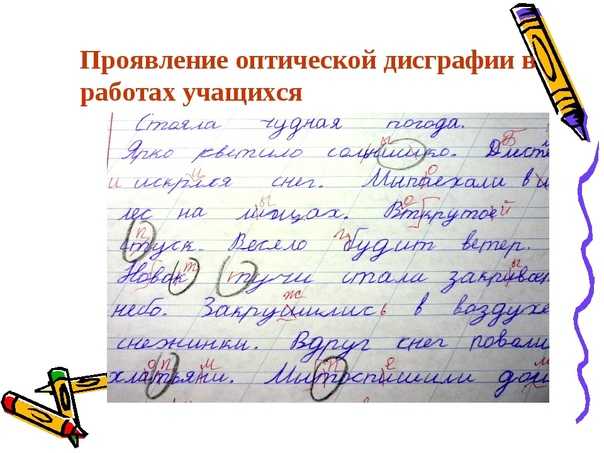 Проявление оптической дисграфии в
работах учащихся
Стояла чудная погода.
Ярко светило солнишко. Длисте
и искрлся снег. Мипоехали в
лес на лищах. Вткрутое
стуск. Весело будит ветер.
Новак тучи стала закрвае
небо. Закрушились в воздухе
снежинки. Вдруг снег повали
хлатьяни. Митоспишили дом